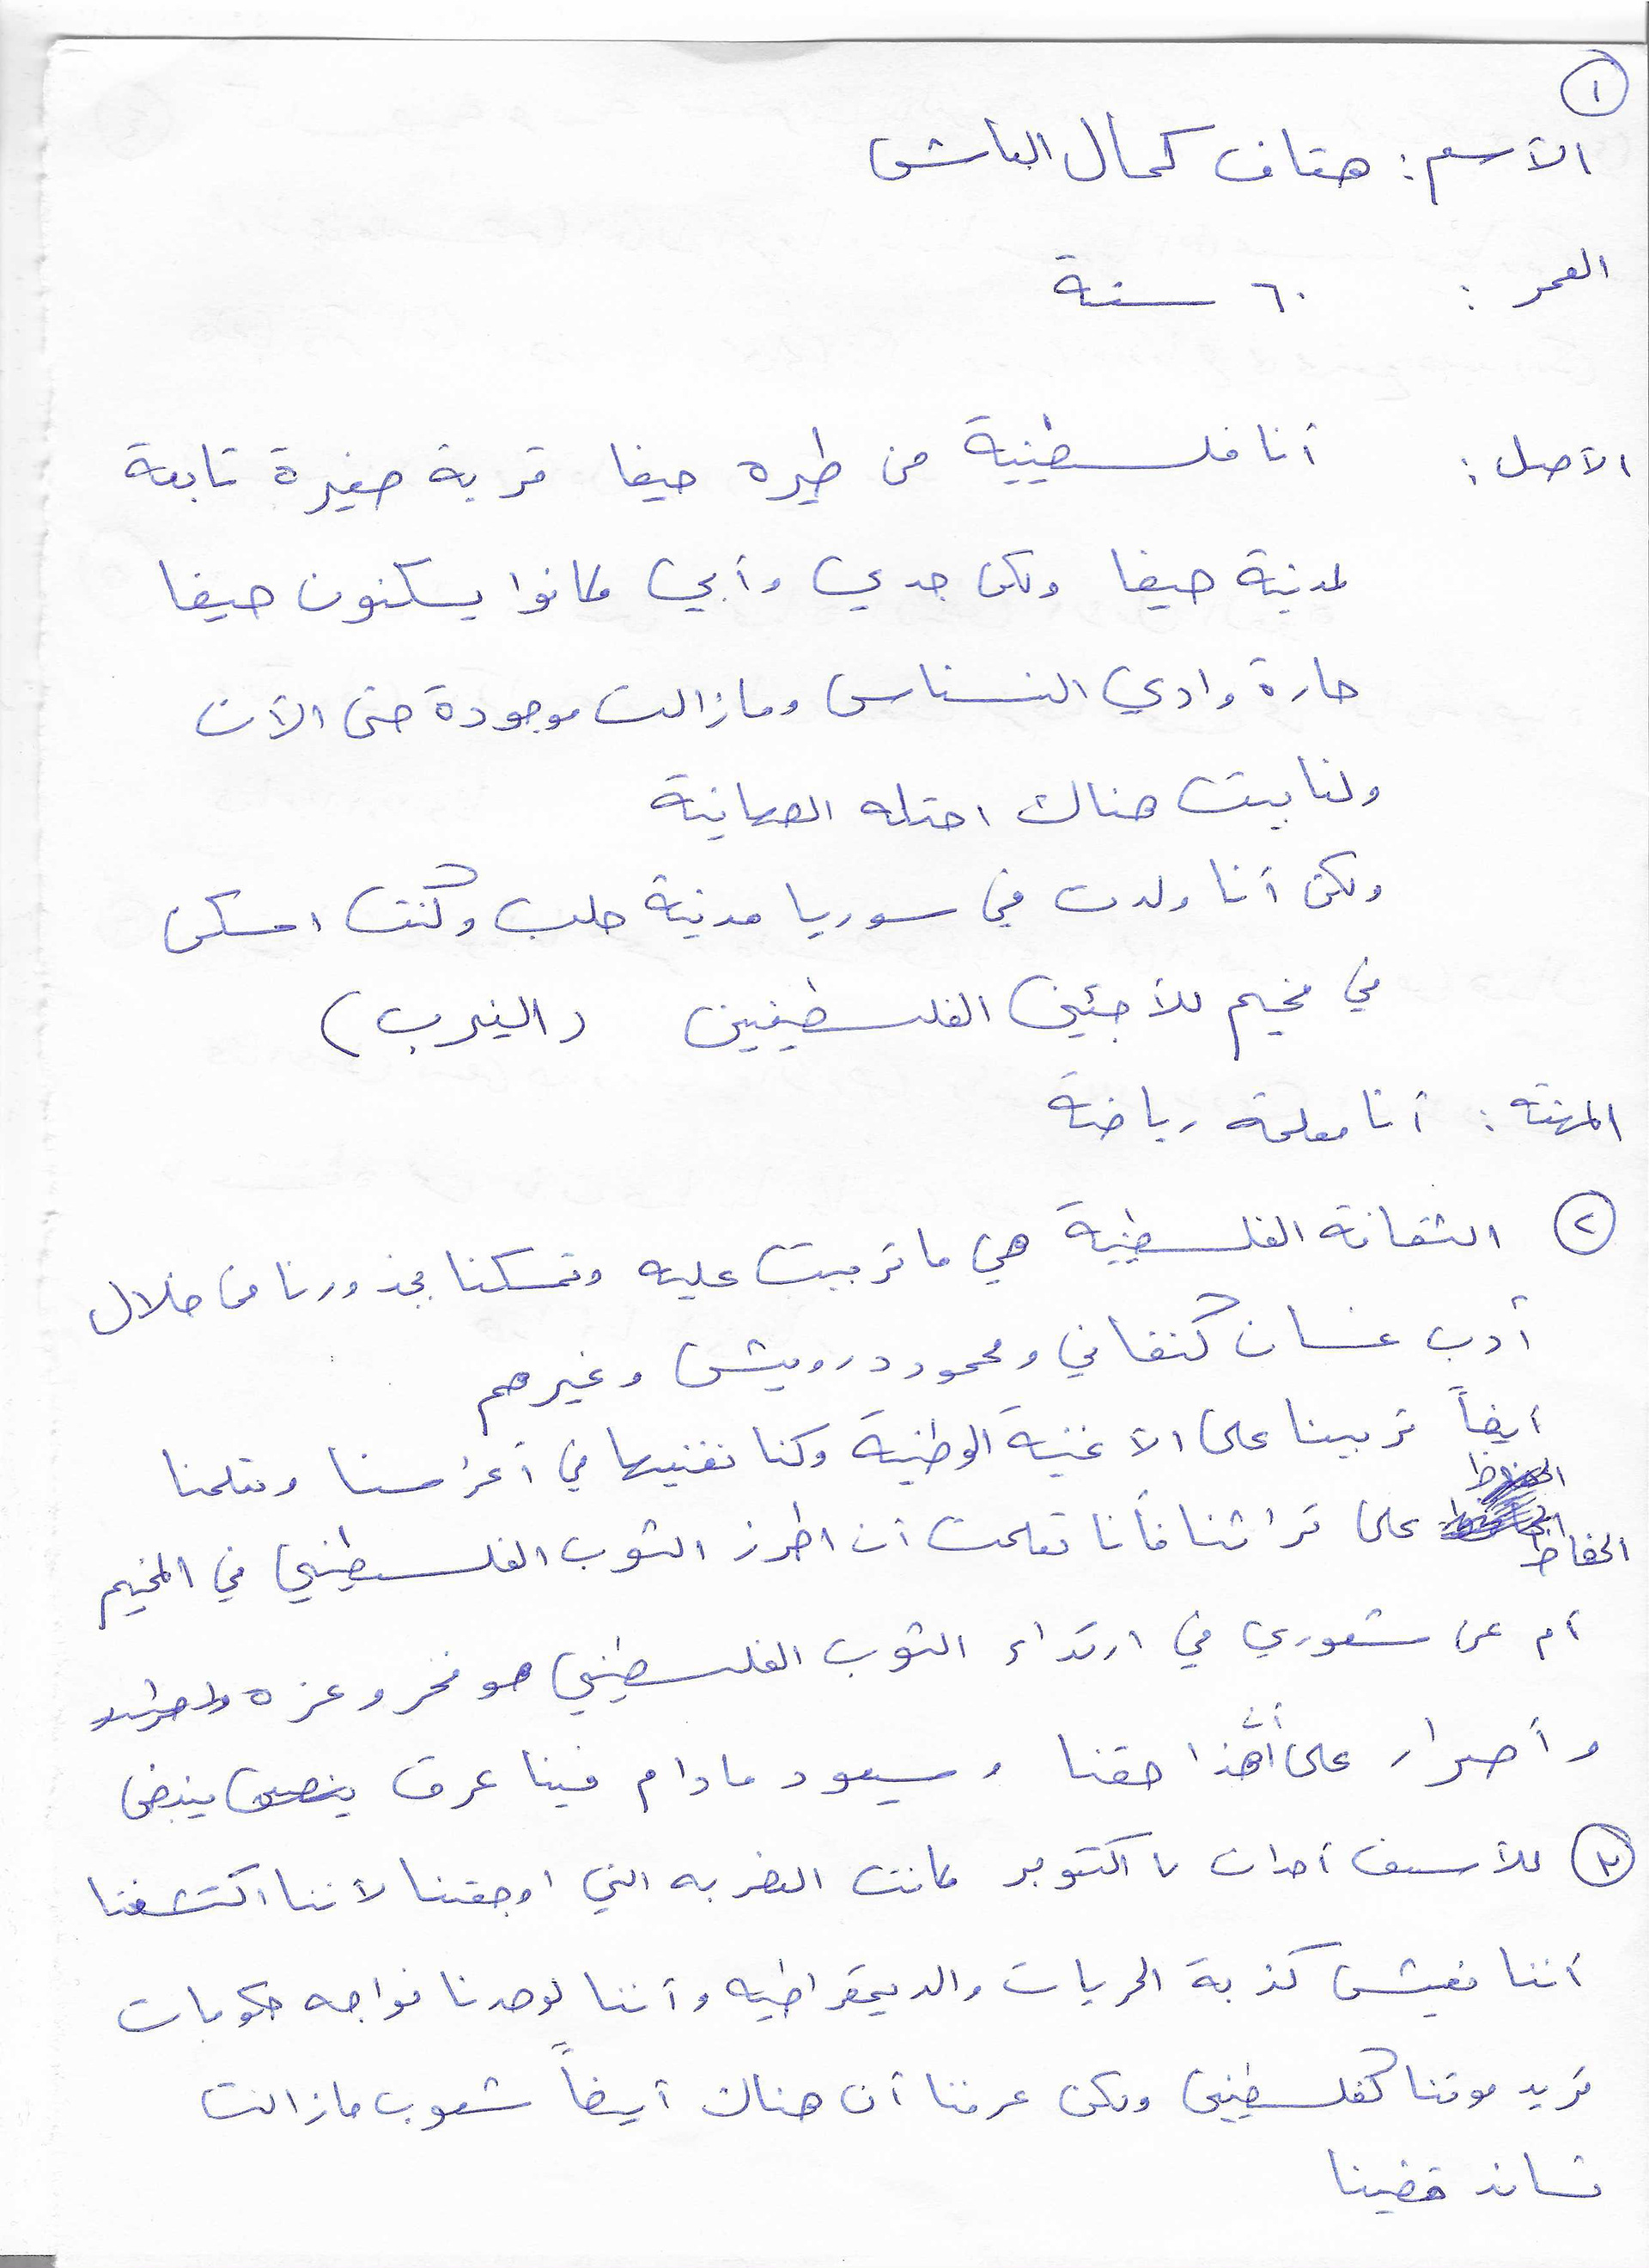 ١
الأسم : هتاف كمال الباش
العمر : ٦٠ سنة
الأصل : أنا فلسطينية من طيره حيفا قرية صغيرة تابعة
لمدينة حيفا ولكن جدي وأبي كانوا يسكنون حيفا
حارة وادي النسناس ومازالت موجودة حتى الآن
ولنا بيت هناك احتله الصهاينة
ولكن أنا ولدت في سوريا مدينة حلب وكنت اسكن
في مخيم للأجئين الفلسطينين (النيرب)
المهنه : أنا معلمة رياضة
٢ الثقافة الفلسطينية هي ما تربيت عليه وتمسكنا بجذورنا من خلال
أدب غسان كنفاني ومحمود درويش وغيرهم
أيضاً تربينا على الأغنية الوطنية وكنا نغنيها في أعراسنا وتعلمنا
الحفاظ على تراثنا فأنا تعلمت أن اطرز الثوب الفلسطيني في المخيم
أم عن شعوري في ارتداء الثوب الفلسطيني هو فخر وعزه
وأصرار على أن هذا حقنا وسيعود مادام فينا عرق ينبض
٣ للأسف أحداث ٧ اكتوبر كانت الضربه التي اوجعتنا لأننا اكتشفنا
أننا نعيش كذبة الحريات والديمقراطيه وأننا لوحدنا نواجه حكومات
تريد موتنا كفلسطيني ولكن عرفنا أن هناك أيضاً شعوب مازالت
تساند قضيتنا